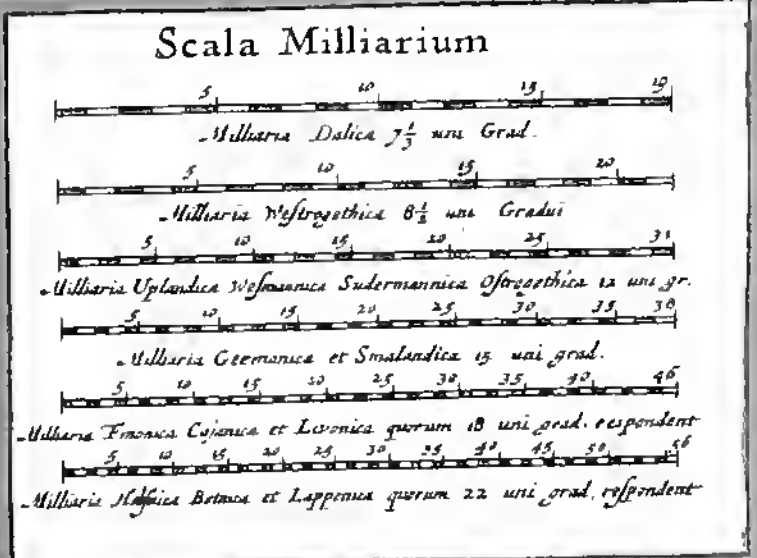 Scala Milliarium
5 10 15 19
Milliaria Dalica 7⅓ uni Grad.
5 10 15 20
Milliaria Westrogothica 8½ uni Gradui
5 10 15 20 25 31
Milliaria Uplandica Wesmannica Sudermannica Ostrogothica 12 uni gr.
5 10 15 20 25 30 35 38
Milliaria Germanica et Smalandica 15 uni grad.
5 10 15 20 25 30 35 40 46
Milliaria Cajanica et Livonica quorum 18 uni grad. respondent
5 10 15 20 25 30 35 40 45 50 56
Milliaria et Lapponica quorum 22 uni grad. respondent